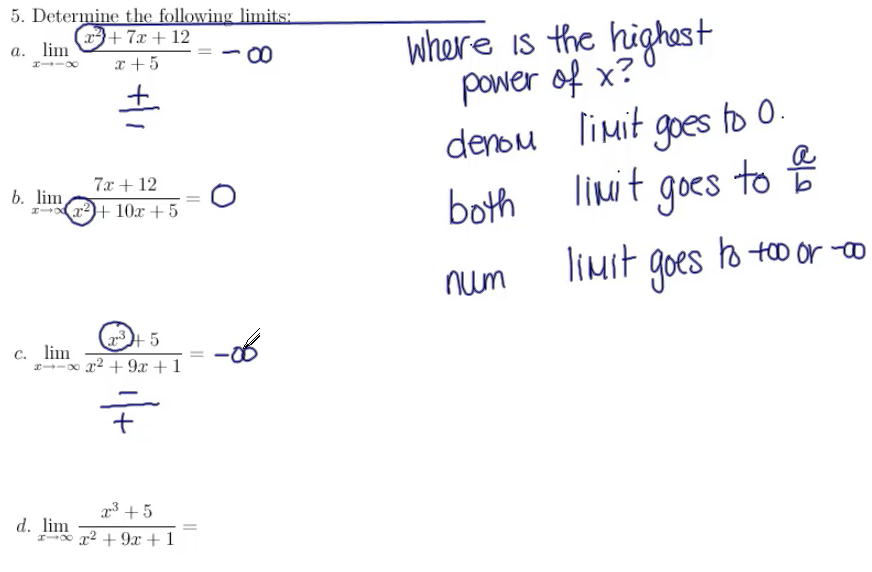 5. Determine the following limits:
a. lim x→−∞ (x² + 7x + 12)/(x + 5) = −∞
+
−
b. lim x→∞ (7x + 12)/(x² + 10x + 5) = 0
c. lim x→−∞ (x³ + 5)/(x² + 9x + 1) = −∞
−
+
d. lim x→∞ (x³ + 5)/(x² + 9x + 1) =
Where is the highest
power of x?
denom limit goes to 0.
both limit goes to a/b
num limit goes to +∞ or −∞